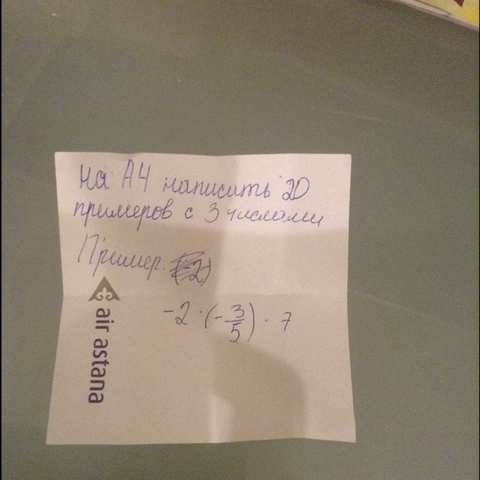 на А4 написать 20
примеров с 3 числами
Пример.
-2 · (-3/5) · 7
air astana